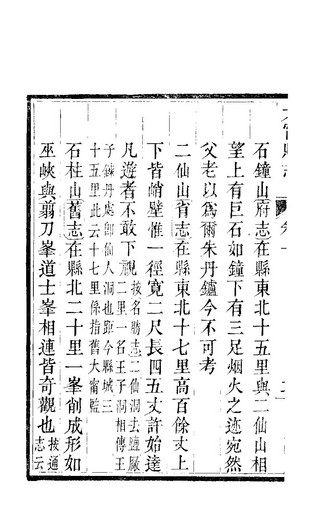 石鐘山府志在縣東北十五里與二仙山相
望上有巨石如鐘下有三足烟火之迹宛然
父老以爲爾朱丹鑪今不可考
二仙山省志在縣東北十七里高百餘丈上
下皆峭壁惟一徑寬二尺長四五丈許始達
凡遊者不敢下視按名勝志二仙洞去鹽厰二里一名王子洞相傳王
子錬丹處卽仙人洞也距今縣城三十五里此云十七里係指舊大甯監
石柱山舊志在縣北二十里一峯削成形如
巫峽與翦刀峯道士峯相連皆奇觀也按通志云